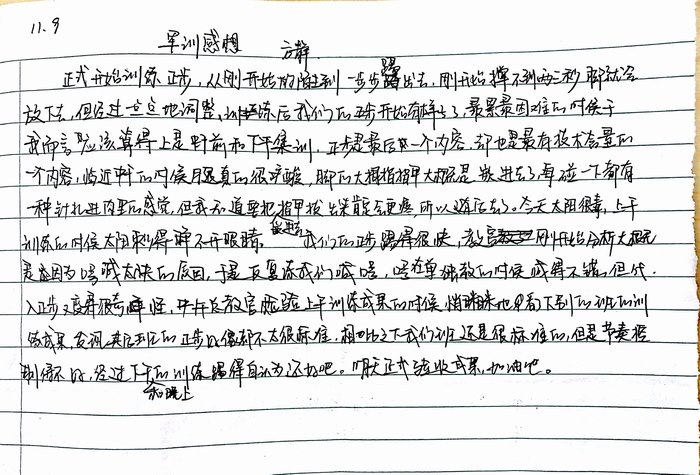 11.9
军训感想 方静
正式开始训练正步，从刚开始的 到一步步踢出去，刚开始撑不到两三秒脚就会
放下去，但经过一点点地调整，训练后我们的正步开始有样子了最累最困难的时候于
我而言应该算得上是中午前和下午集训，正步是最后一个内容，却也是最有技术含量的
一个内容，临近中午的时候腿真的很酸，脚的大拇指指甲大概是嵌进去了每碰一下都有
一种针扎进肉里的感觉，但我知道要把指甲拔出来肯定会更疼，所以 了。今天太阳很毒，上午
训练的时候太阳刺得睁不开眼睛。我们的正步踢得很快，教官刚开始分析大概
是因为口号喊太快的原因，于是反复练我们喊口号，口号在单独教的时候喊得不错，但代
入正步又变得很奇怪，中午后教官验收上午训练成果的时候，悄悄地看了下别的班的训
练成果，发现其后到的正步好像都不太很标准，相比之下我们班还是很标准的，但是节奏控
制得不好，经过下午和晚上的训练踢得自认为还好吧。明天正式验收成果，加油吧。